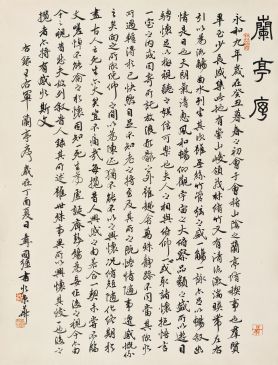 蘭亭序
永和九年歲在癸丑暮春之初會于會稽山陰之蘭亭脩禊事也羣賢
畢至少長咸集此地有崇山峻領茂林脩竹又有清流激湍暎帶左右
引以為流觴曲水列坐其次雖無絲竹管弦之盛一觴一詠亦足以暢敘幽
情是日也天朗氣清惠風和暢仰觀宇宙之大俯察品類之盛所以遊目
騁懷足以極視聽之娛信可樂也夫人之相與俯仰一世或取諸懷抱悟言
一室之內或因寄所託放浪形骸之外雖趣舍萬殊靜躁不同當其欣於
所遇暫得於己快然自足不知老之將至及其所之既惓情隨事遷感慨係
之矣向之所欣俛仰之間以為陳迹猶不能不以之興懷況脩短隨化終期於
盡古人云死生亦大矣豈不痛哉每攬昔人興感之由若合一契未嘗不臨
文嗟悼不能喻之於懷固知一死生為虛誕齊彭殤為妄作後之視今亦由
今之視昔悲夫故列敘時人錄其所述雖世殊事異所以興懷其致一也後之
攬者亦將有感於斯文
右錄王右軍蘭亭序歲在丁酉夏日國強書於京華